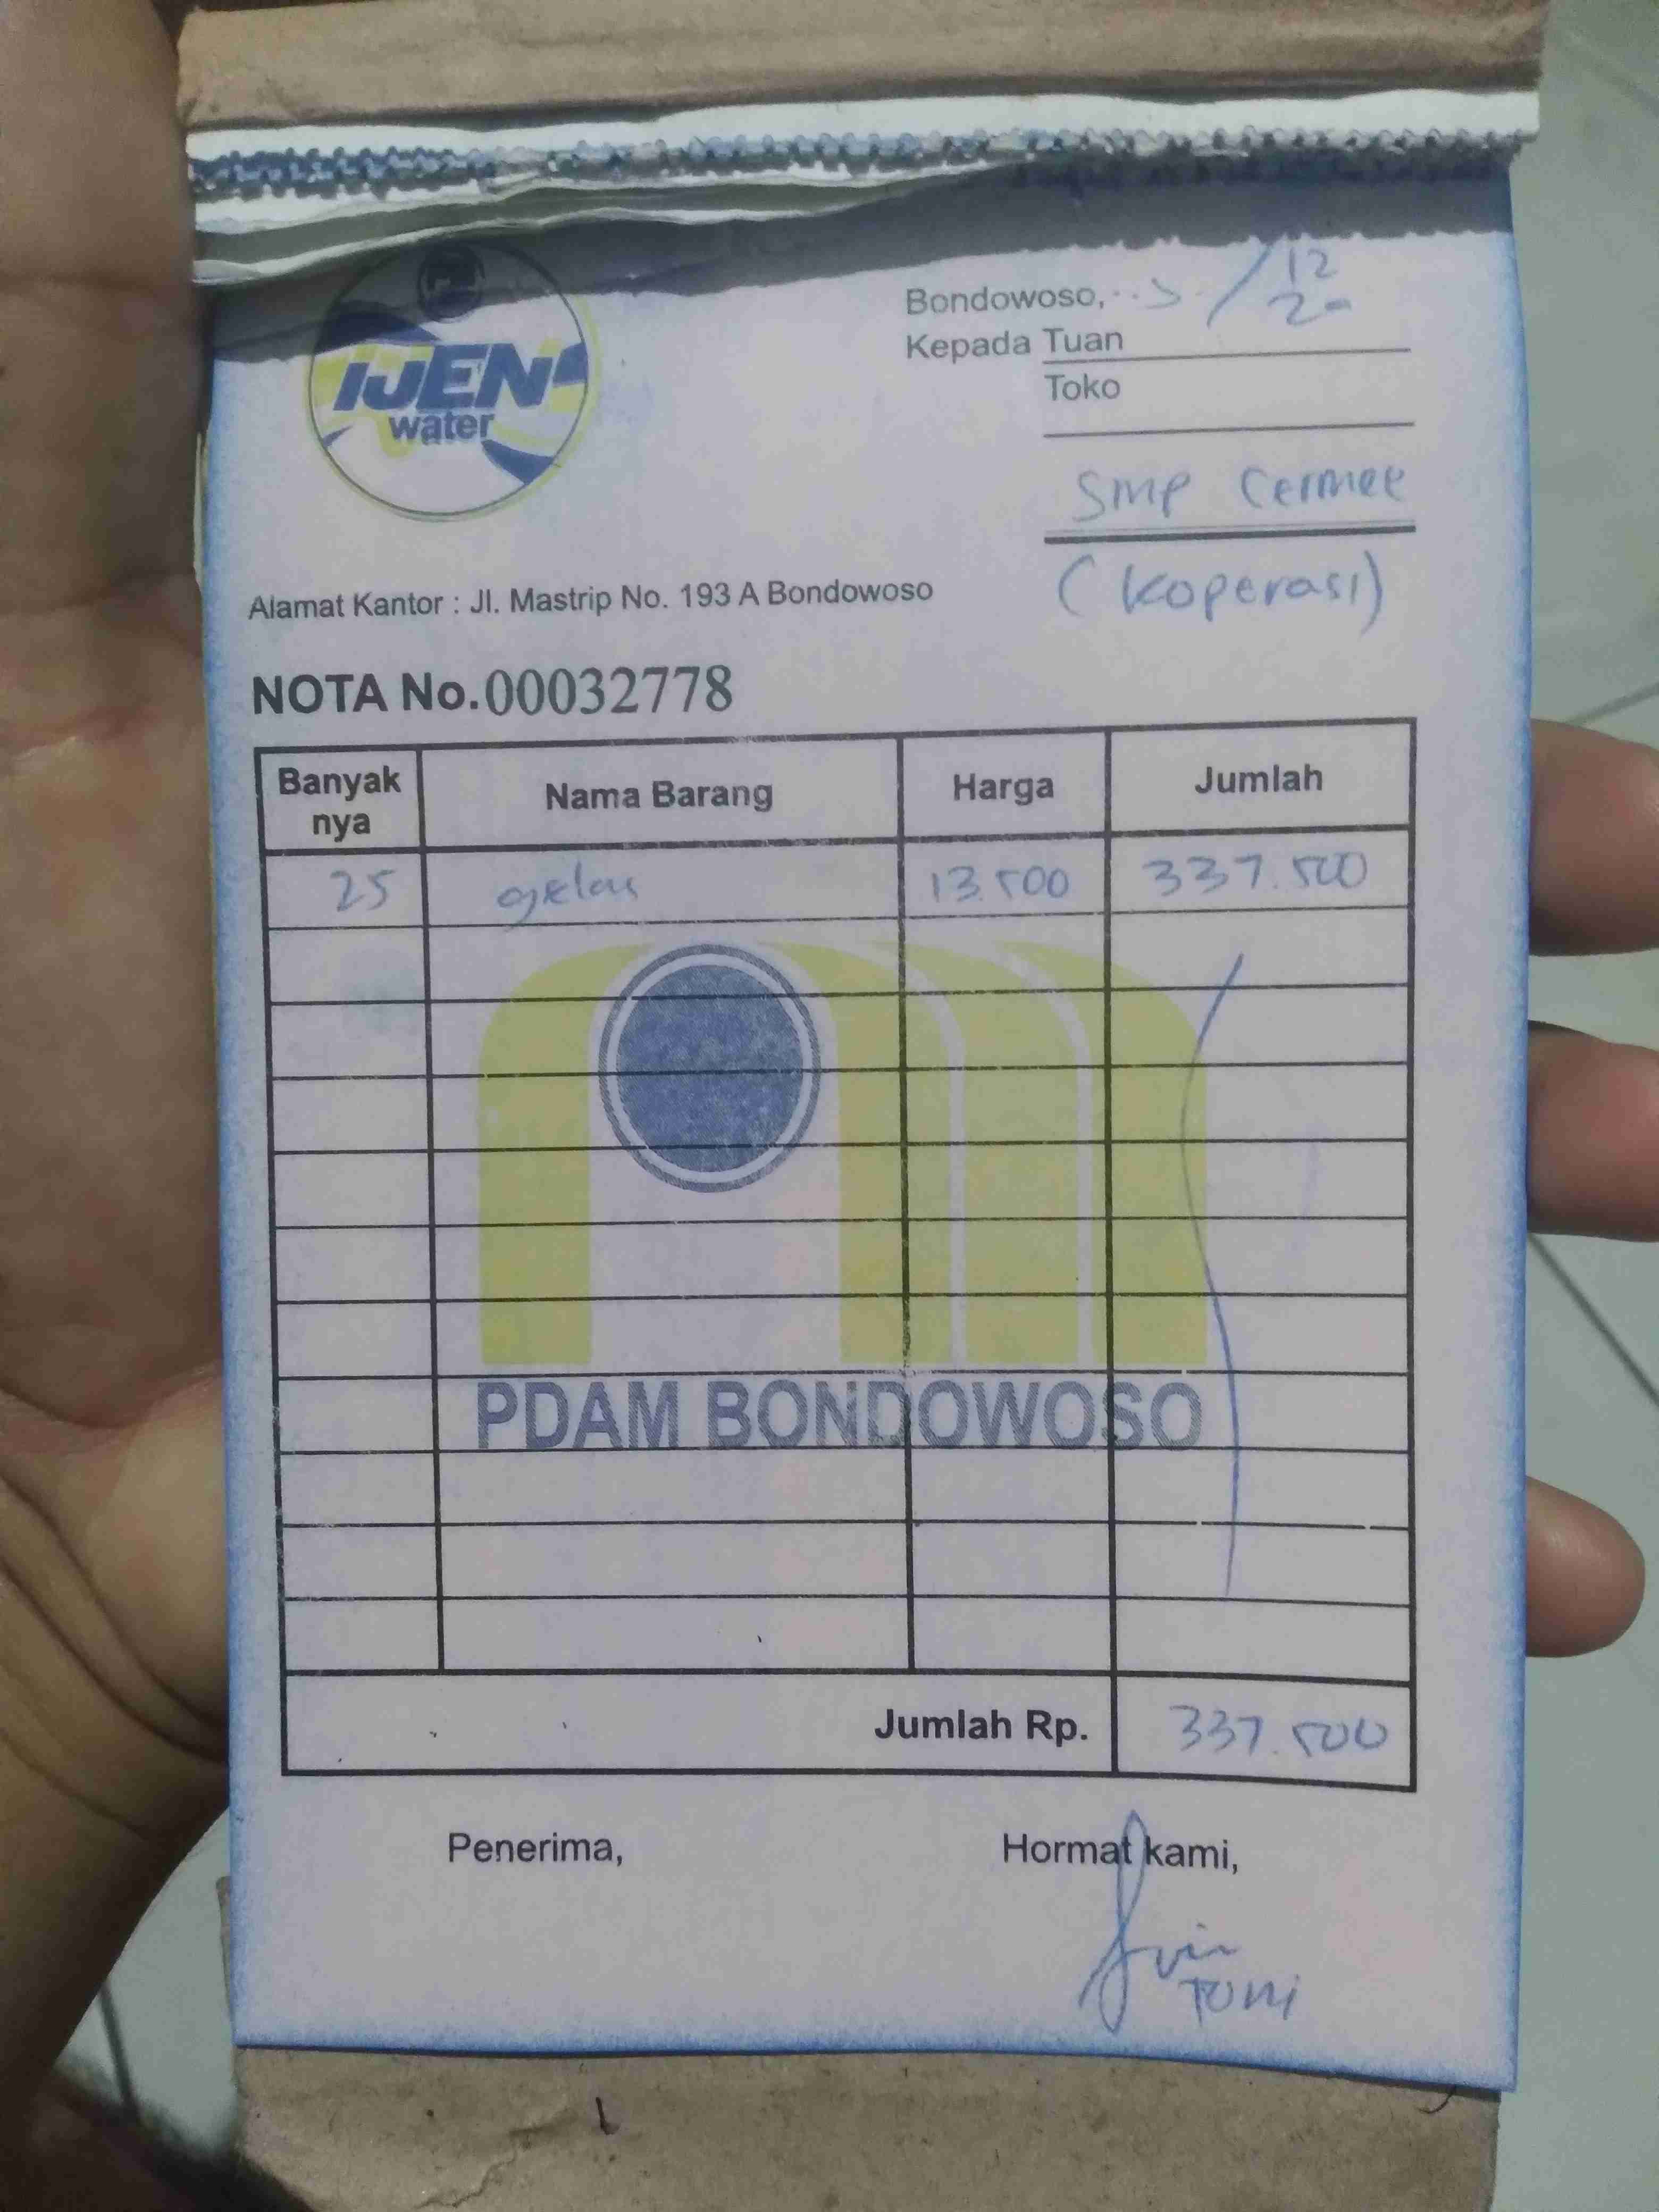 IJEN
water
Bondowoso, 5 / 12
20
Kepada Tuan
Toko
SMP Cermee
(Koperasi)
Alamat Kantor : Jl. Mastrip No. 193 A Bondowoso
NOTA No. 00032778
Banyak nya Nama Barang Harga Jumlah
25 gelas 13.500 337.500
PDAM BONDOWOSO
Jumlah Rp. 337.500
Penerima, Hormat kami,
Toni